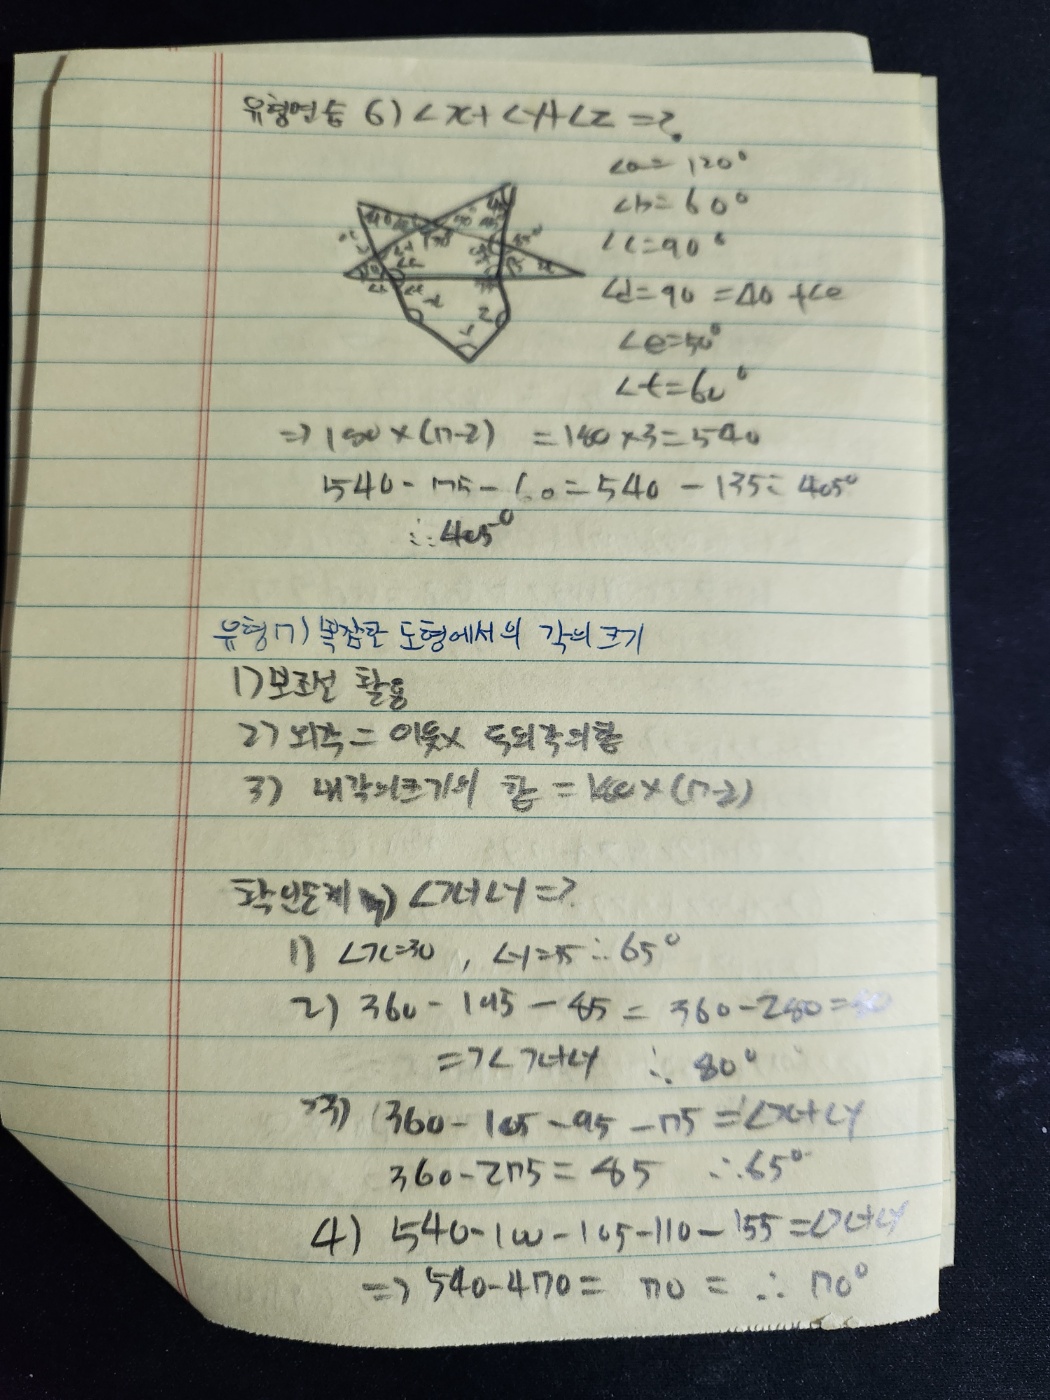 유형연습 6) ∠x+∠y+∠z=?
∠a=120°
∠b=60°
∠c=90°
∠d=90=40+∠e
∠e=50°
∠f=60°
=> 180×(n-2) =180×3=540
540-75-60=540-135=405°
∴405°
유형7) 복잡한 도형에서의 각의크기
1) 보조선 활용
2) 외각= 이웃x 두외각의합
3) 내각의크기의 합 =180×(n-2)
확인단계 ∠x+∠y=?
1) ∠x=30, ∠y=35 ∴65°
2) 360-195-85= 360-280=80
=>∠x+∠y ∴ 80°
3) 360-105-95-75=∠x+∠y
360-275=85 ∴85°
4) 540-100-105-110-155=∠x+∠y
=> 540-470= 70= ∴ 70°